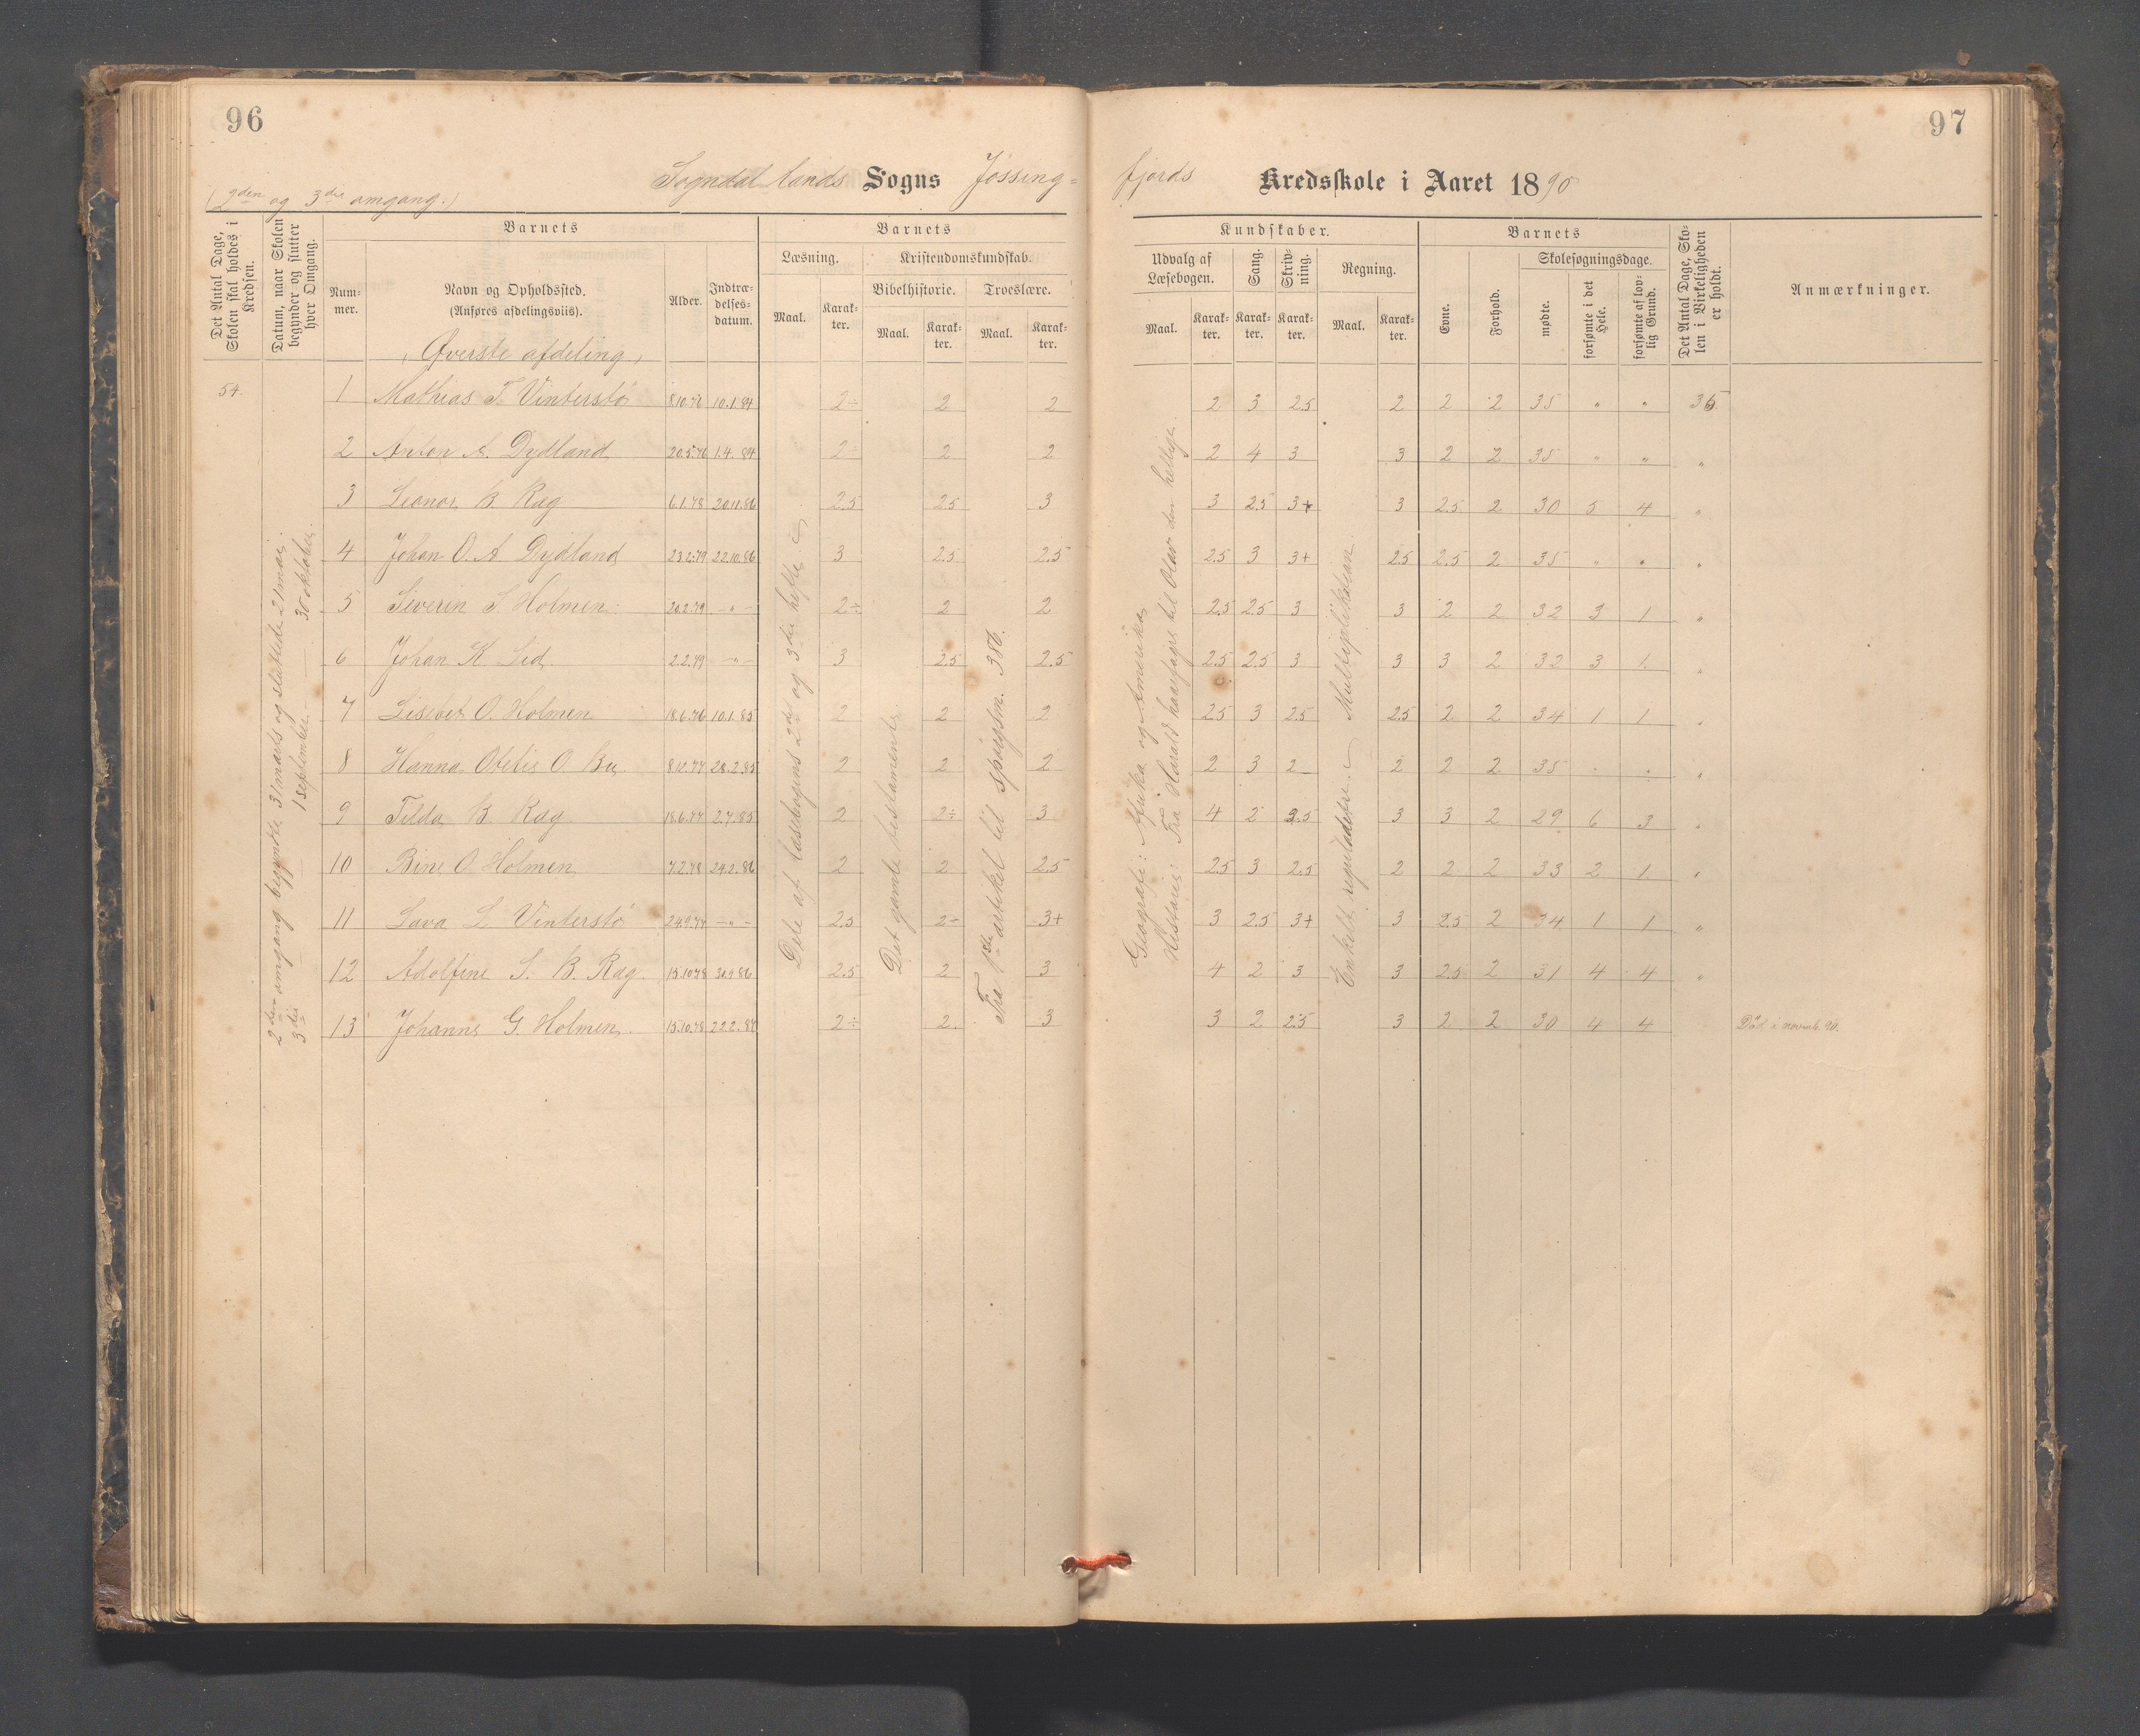 96
97
Sogndal lands Sogns Jøssing=
fjords Kredsskole i Aaret 1890
(2den og 3die omgang.)
Det Antal Dage, Skolen skal holdes i Kredsen.
Datum, naar Skolen begynder og slutter hver Omgang.
Barnets
Num-
mer.
Navn og Opholdssted.
(Anføres afdelingsviis).
Alder.
Indtræ-
delses-
datum.
Barnets
Læsning.
Maal.
Karak-
ter.
Kristendomskundskab.
Bibelhistorie.
Maal.
Karak-
ter.
Troeslære.
Maal.
Karak-
ter.
Kundskaber.
Udvalg af
Læsebogen.
Maal.
Karak-
ter.
Sang.
Karak-
ter.
Skriv-
ning.
Karak-
ter.
Regning.
Maal.
Karak-
ter.
Barnets
Evne.
Forhold.
Skolesøgningsdage.
mødte.
forsømte i det Hele.
forsømte af lov-
lig Grund.
Det Antal Dage, Sko-
len i Virkeligheden
er holdt.
Anmærkninger.
(Øverste afdeling)
54.
2den omgang begyndte 31 marts og sluttede 21 mai.
3die — 1 september — 30 oktober.
Dele af læsebogens 2det og 3die hefte.
Det gamle testamente.
Fra 1ste artikel til spørgsm. 386.
Geografi: Afrika og Amerika,
Historie: Fra Harald haarfagre til Olav den hellige.
Enkelt reguladetri. Multiplikation
1 Mathias T. Vinterstø 8.10.76 10.1.84 2÷ 2 2 2 3 2.5 2 2 2 35 " " 36
2 Anton A. Dydland 20.5.76 1.4.84 2÷ 2 2 2 4 3 3 2 2 35 " " "
3 Leonor B. Rag 6.1.78 20.11.86 2.5 2.5 3 3 2.5 3+ 3 2.5 2 30 5 4 "
4 Johan O. A. Dydland 23.2.79 22.10.86 3 2.5 2.5 2.5 3 3+ 2.5 2.5 2 35 " " "
5 Severin S. Holmen 20.2.79 —"— 2÷ 2 2 2.5 2.5 3 3 2 2 32 3 1 "
6 Johan K. Lid 2.2.79 —"— 3 2.5 2.5 2.5 2.5 3 3 3 2 32 3 1 "
7 Lisebet O. Holmen 18.6.76 10.1.85 2 2 2 2.5 3 2.5 2.5 2 2 34 1 1 "
8 Hanna Otelie O. Bu 8.12.77 28.2.85 2 2 2 2 3 2 2 2 2 35 " " "
9 Tilda B. Rag 18.6.77 2.7.85 2 2÷ 3 4 2 3.5 3 3 2 29 6 3 "
10 Bine O. Holmen 7.2.78 24.2.86 2 2 2.5 2.5 3 2.5 2 2 2 33 2 1 "
11 Lava L. Vinterstø 24.9.77 —"— 2.5 2÷ 3+ 3 2.5 3+ 3 2.5 2 34 1 1 "
12 Adolfine S. B. Rag 15.10.78 30.9.86 2.5 2 3 4 2 3 3 2.5 2 31 4 4 "
13 Johanne G. Holmen 15.10.78 22.2.87 2÷ 2 3 3 2 2.5 3 2 2 30 4 4 Død i novemb. 90.